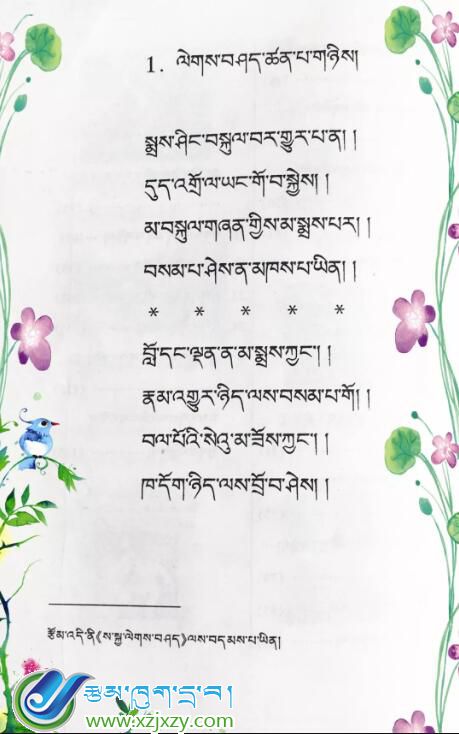 1. ལེགས་བཤད་ཚན་པ་གཉིས།
སྨྲས་ཤིང་བསྐུལ་བར་གྱུར་པ་ན། །
དུད་འགྲོ་ལ་ཡང་གོ་བ་སྐྱེས། །
མ་བསྐུལ་གཞན་གྱིས་མ་སྨྲས་པར། །
བསམ་པ་ཤེས་ན་མཁས་པ་ཡིན། །
* * * * *
བློ་དང་ལྡན་ན་མ་སྨྲས་ཀྱང་། །
རྣམ་འགྱུར་ཉིད་ལས་བསམ་པ་གོ། །
བལ་པོའི་སེའུ་མ་ཟོས་ཀྱང་། །
ཁ་དོག་ཉིད་ལས་བྲོ་བ་ཤེས། །
རྩོམ་འདི་ནི《ས་སྐྱ་ལེགས་བཤད》ལས་བདམས་པ་ཡིན།
རྩམ་ཁུག་དྲ་བ།
www.xzjxzy.com